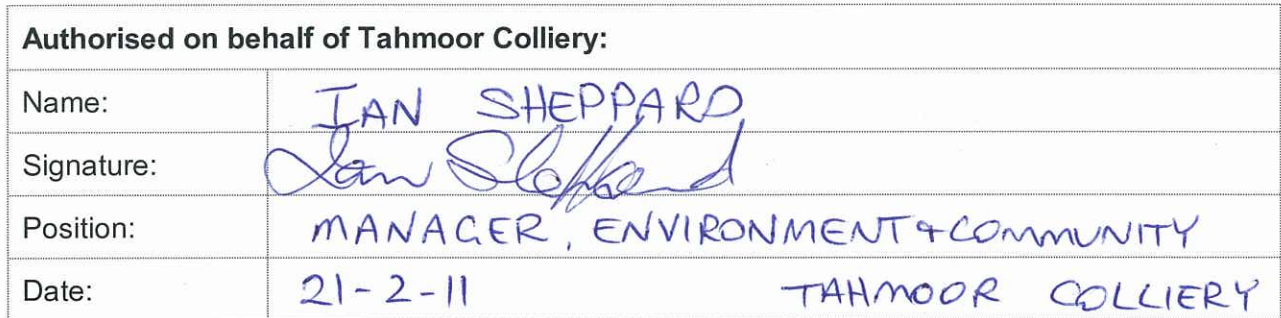 Authorised on behalf of Tahmoor Colliery:
Name: IAN SHEPPARD
Signature: Ian Sheppard
Position: MANAGER, ENVIRONMENT & COMMUNITY
Date: 21-2-11 TAHMOOR COLLIERY